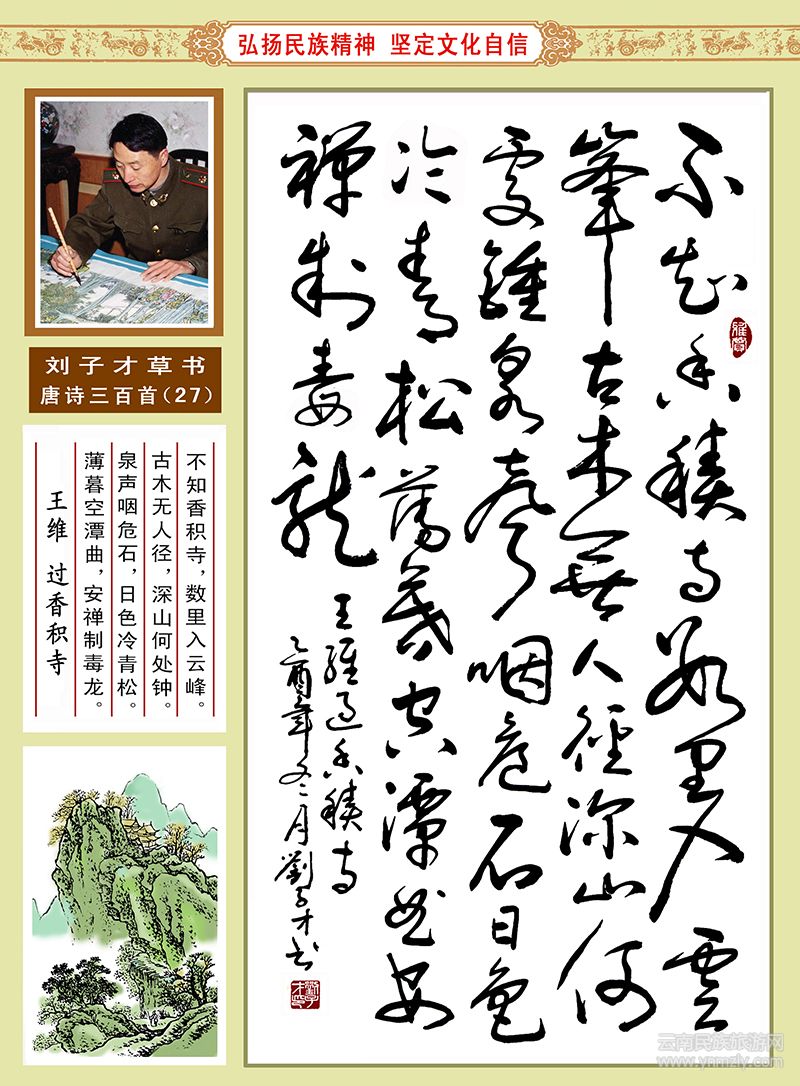 弘扬民族精神 坚定文化自信
刘子才草书
唐诗三百首(27)
不知香积寺，数里入云峰。
古木无人径，深山何处钟。
泉声咽危石，日色冷青松。
薄暮空潭曲，安禅制毒龙。
王维 过香积寺
不知香積寺數里入雲
峯古木無人徑深山何
處鍾泉聲咽危石日色
冷青松薄暮空潭曲安
禪制毒龍 王維過香積寺
乙酉年冬月劉子才书
云南民族旅游网
www.ynmzly.com